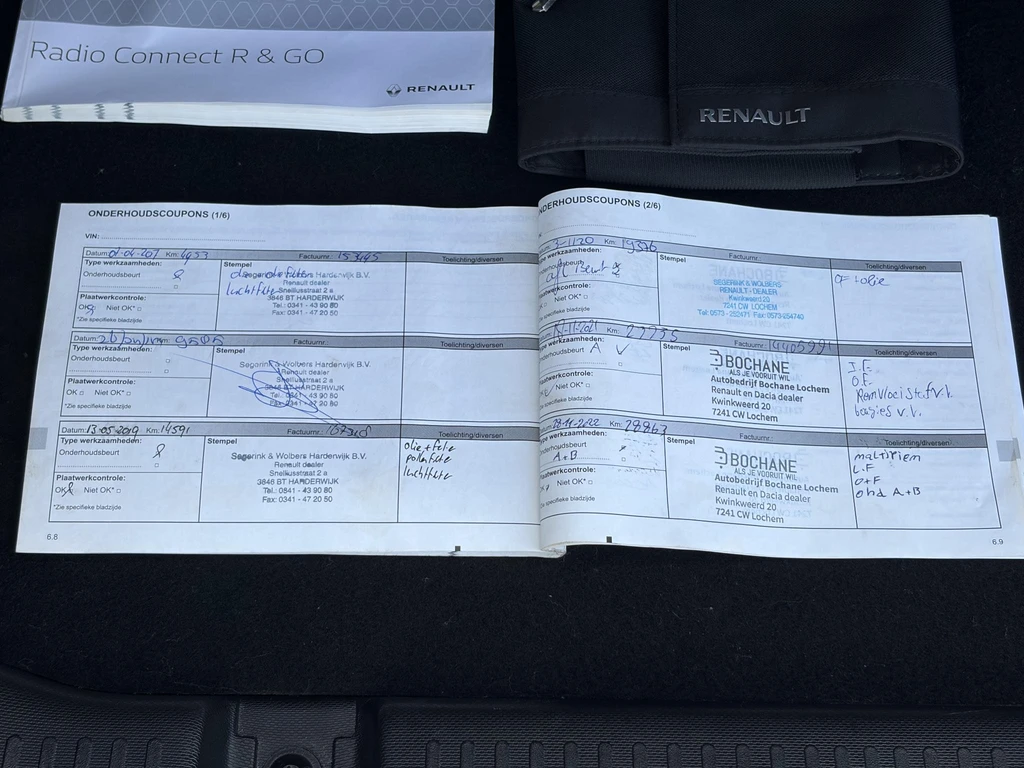 Radio Connect R & GO
RENAULT
RENAULT
ONDERHOUDSCOUPONS (1/6)
VIN:
Datum: Km: 4953 Factuurnr.: 153495
Type werkzaamheden:
Onderhoudsbeurt
Plaatwerkcontrole:
OK Niet OK*
*Zie specifieke bladzijde
Stempel
Segerink & Wolbers Harderwijk B.V.
Renault dealer
Snelliusstraat 2 a
3846 BT HARDERWIJK
Tel.: 0341 - 43 90 80
Fax: 0341 - 47 20 50
luchtfilter
Toelichting/diversen
Datum: Km: 9505 Factuurnr.:
Type werkzaamheden:
Onderhoudsbeurt
Plaatwerkcontrole:
OK Niet OK*
*Zie specifieke bladzijde
Stempel
Segerink & Wolbers Harderwijk B.V.
Renault dealer
Snelliusstraat 2 a
3846 BT HARDERWIJK
Tel.: 0341 - 43 90 80
Fax: 0341 - 47 20 50
Toelichting/diversen
Datum: 13-05-2019 Km: 14591 Factuurnr.:
Type werkzaamheden:
Onderhoudsbeurt
Plaatwerkcontrole:
OK Niet OK*
*Zie specifieke bladzijde
Stempel
Segerink & Wolbers Harderwijk B.V.
Renault dealer
Snelliusstraat 2 a
3846 BT HARDERWIJK
Tel.: 0341 - 43 90 80
Fax: 0341 - 47 20 50
Toelichting/diversen
olie + filter
luchtfilter
6.8
ONDERHOUDSCOUPONS (2/6)
Datum: 3-1120 Km: 19576 Factuurnr.:
werkzaamheden:
Onderhoudsbeurt
Plaatwerkcontrole:
Niet OK*
specifieke bladzijde
Stempel
SEGERINK & WOLBERS
RENAULT - DEALER
Kwinkweerd 20
7241 CW LOCHEM
Tel: 0573 - 252471 Fax: 0573-254740
Toelichting/diversen
OF + olie
-11-2021 Km: 27735 Factuurnr.:
werkzaamheden:
Onderhoudsbeurt A
Plaatwerkcontrole:
Niet OK*
specifieke bladzijde
Stempel
BOCHANE
ALS JE VOORUIT WIL
Autobedrijf Bochane Lochem
Renault en Dacia dealer
Kwinkweerd 20
7241 CW Lochem
Toelichting/diversen
I.F.
O.F.
bougies v.v.
-11-2022 Km: 28863 Factuurnr.:
werkzaamheden:
Onderhoudsbeurt
A+B
Plaatwerkcontrole:
Niet OK*
specifieke bladzijde
Stempel
BOCHANE
ALS JE VOORUIT WIL
Autobedrijf Bochane Lochem
Renault en Dacia dealer
Kwinkweerd 20
7241 CW Lochem
Toelichting/diversen
O+F
ohd A+B
6.9